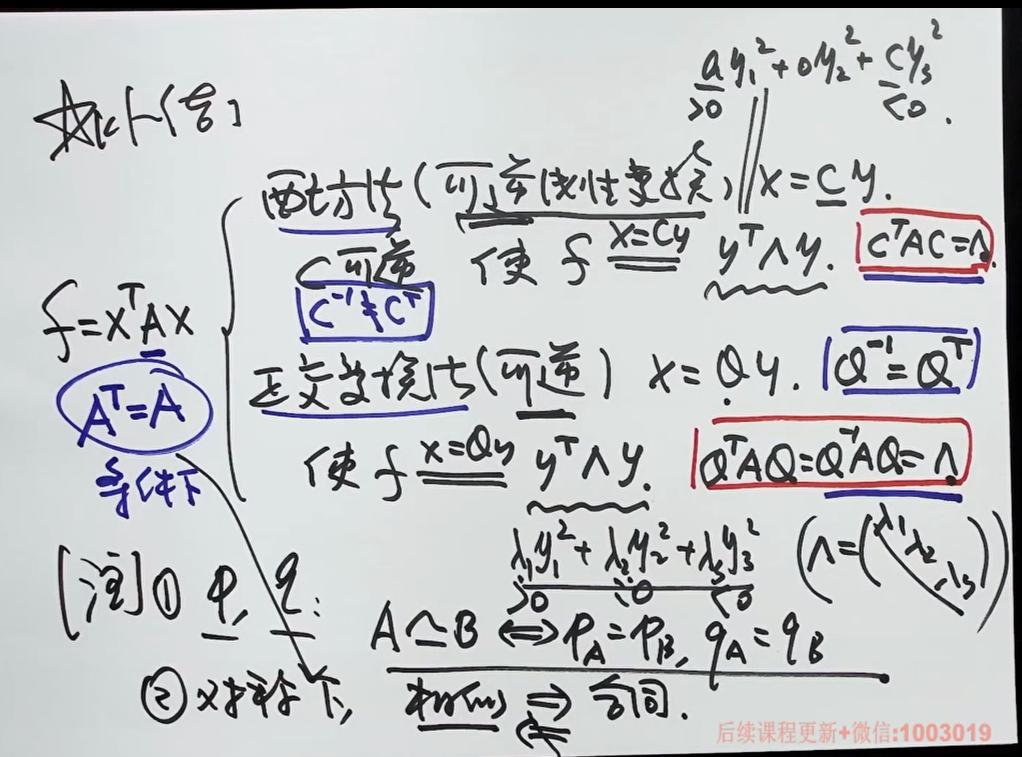 ay₁²+0y₂²+cy₃²
>0 <0.
☆小结
配方法(可逆线性变换) x=Cy.
C可逆 使 f x=Cy yᵀΛy. CᵀAC=Λ.
C⁻¹≠Cᵀ
f=xᵀAx
Aᵀ=A
条件下
正交变换法(可逆) x=Qy. Q⁻¹=Qᵀ
使 f x=Qy yᵀΛy. QᵀAQ=Q⁻¹AQ=Λ.
λ₁y₁²+λ₂y₂²+λ₃y₃² (Λ=(λ₁ λ₂ λ₃))
>0 <0
[注]① p, q:
A≃B ⇔ p_A=p_B, q_A=q_B
② 对称下, 相似 ⇒ 合同.
后续课程更新+微信:1003019